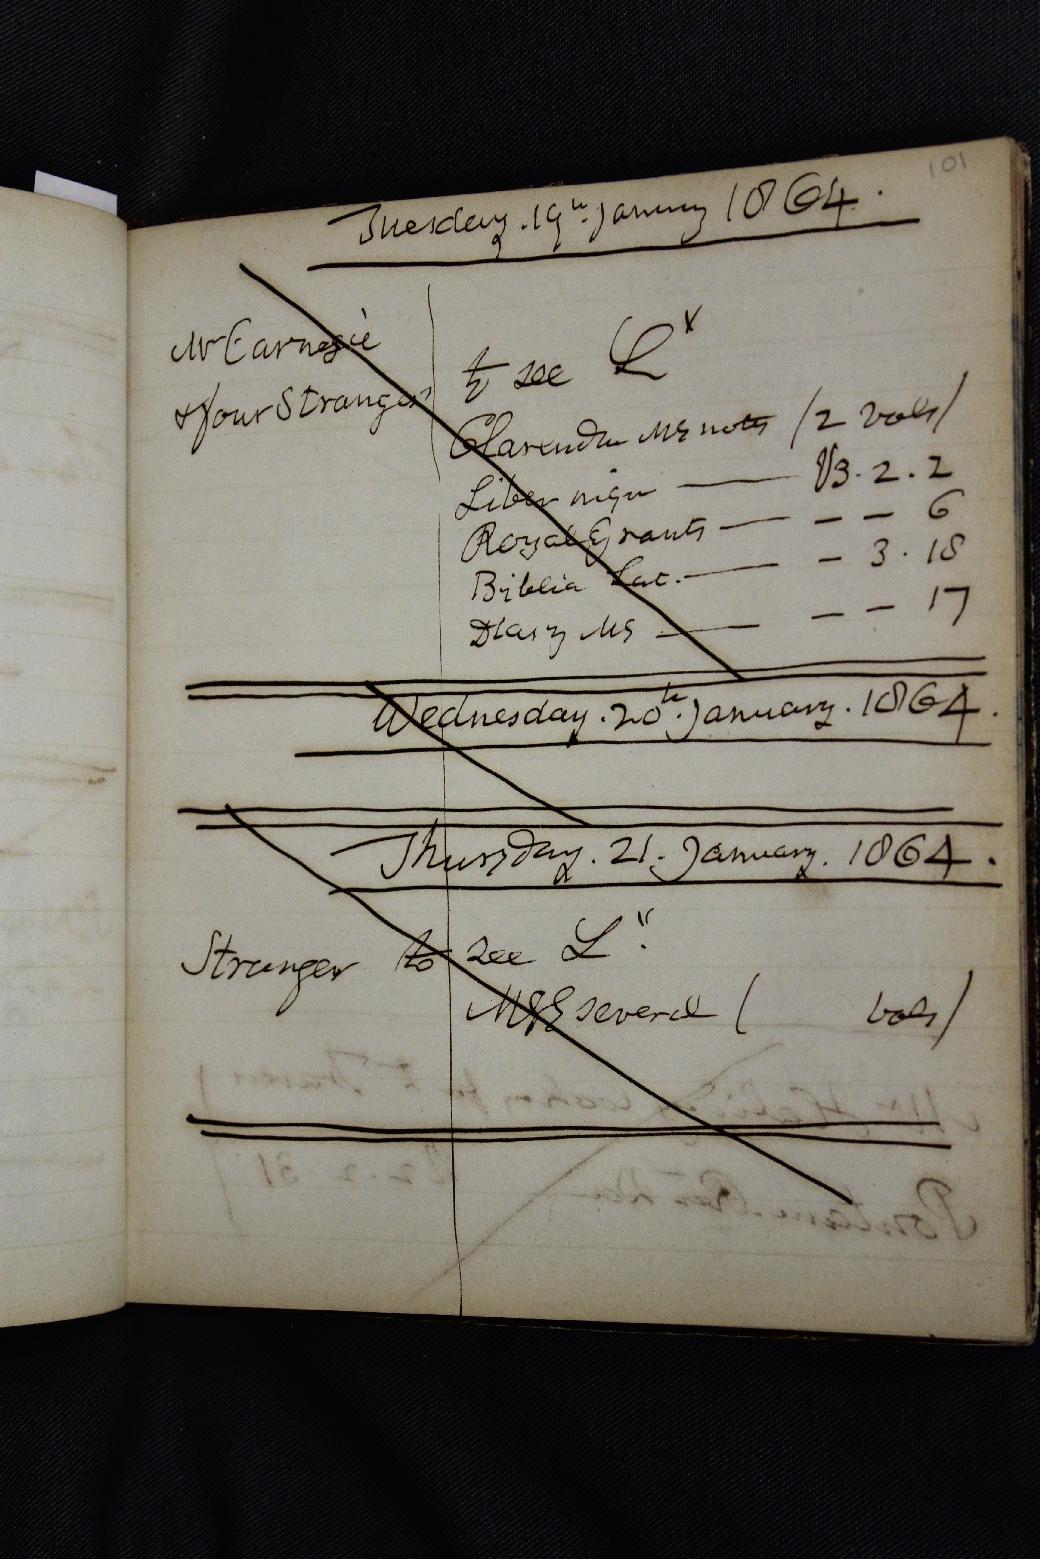 101
Tuesday. 19th. January 1864.
Mr Carnegie
& four Stranger
to see L
Clarendon MS notes (2 vols)
Liber niger — V3. 2. 2
Royal Grants — – – 6
Biblia Lac. — – 3. 18
Diary MS — – – 17
Wednesday. 20th. January. 1864.
Thursday. 21. January. 1864.
Stranger to see L".
MSS several ( vols)